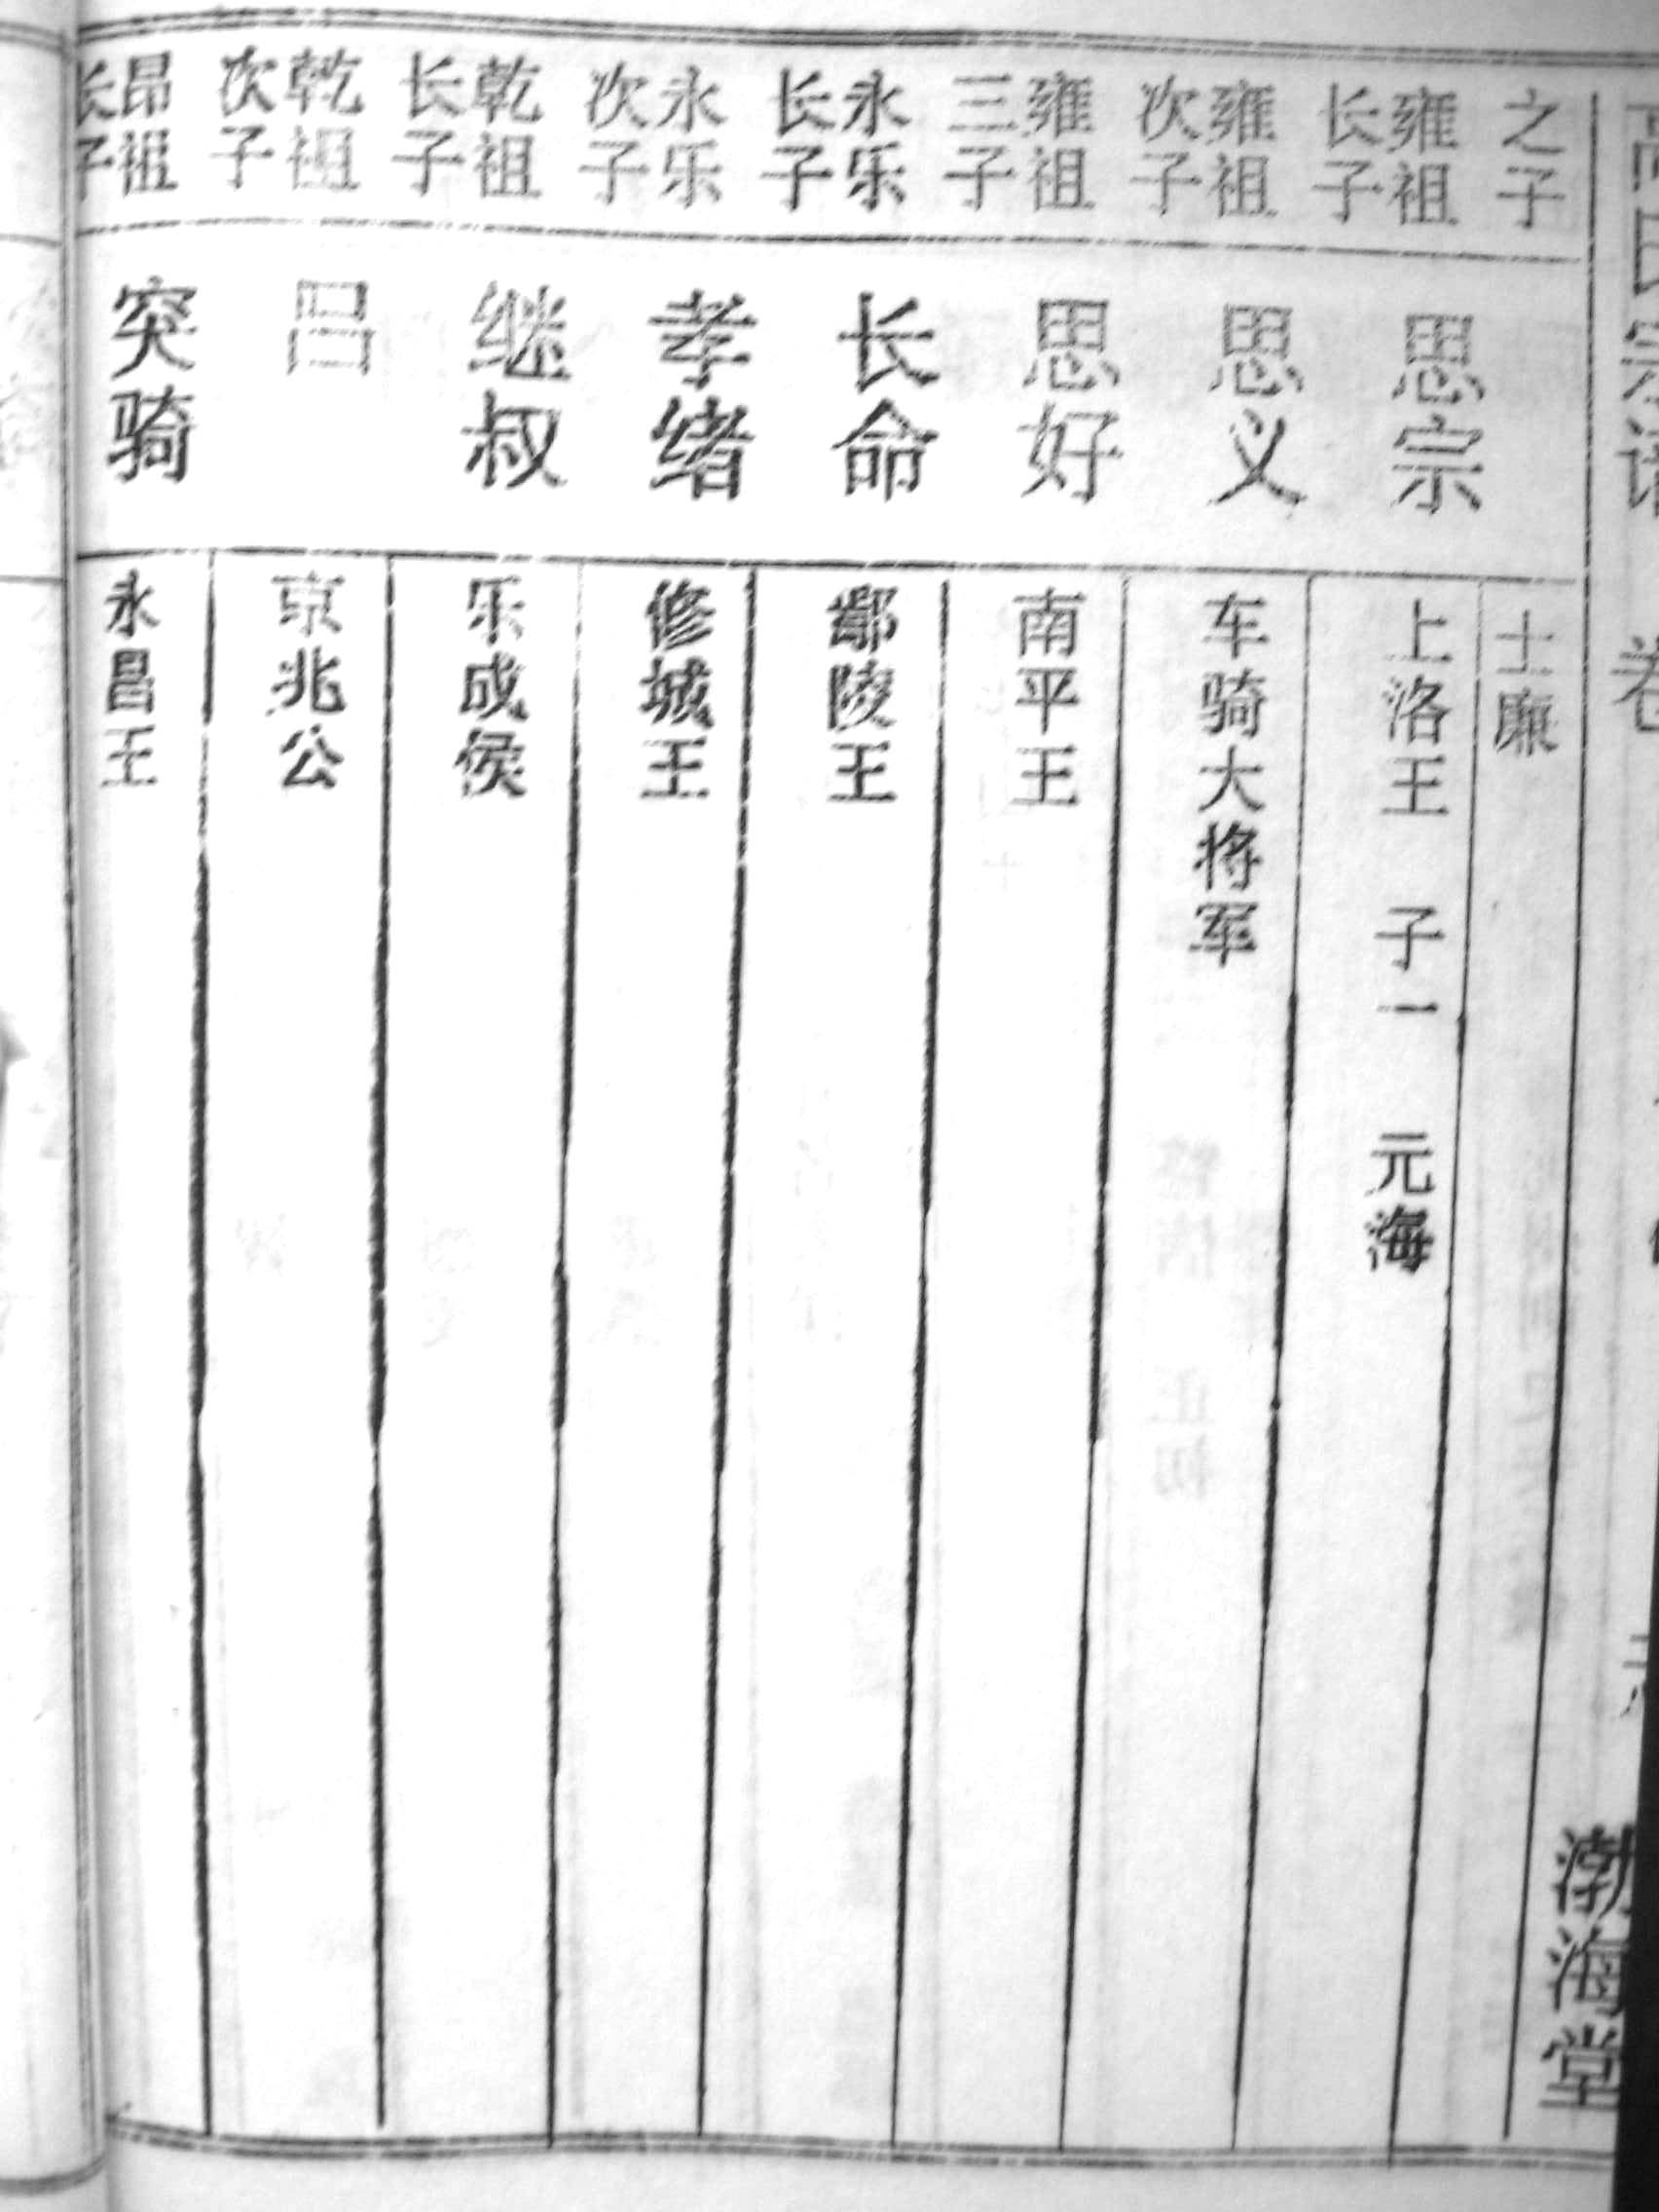 高氏宗谱
卷
渤海堂
之子
士廉
雍祖
长子
思宗
上洛王 子一 元海
雍祖
次子
思义
车骑大将军
雍祖
三子
思好
南平王
永乐
长子
长命
鄢陵王
永乐
次子
孝绪
修城王
乾祖
长子
继叔
乐成侯
乾祖
次子
吕
京兆公
昂祖
长子
突骑
永昌王